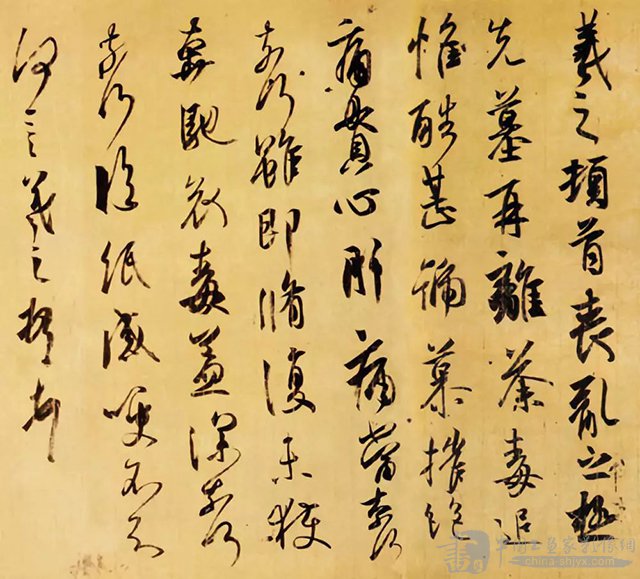 羲之頓首喪亂之極
先墓再離荼毒追
惟酷甚號慕摧絕
痛貫心肝痛當奈何
奈何雖即脩復未獲
奔馳哀毒益深奈何
奈何臨紙感哽不知
何言羲之頓首
china-shjyx.com